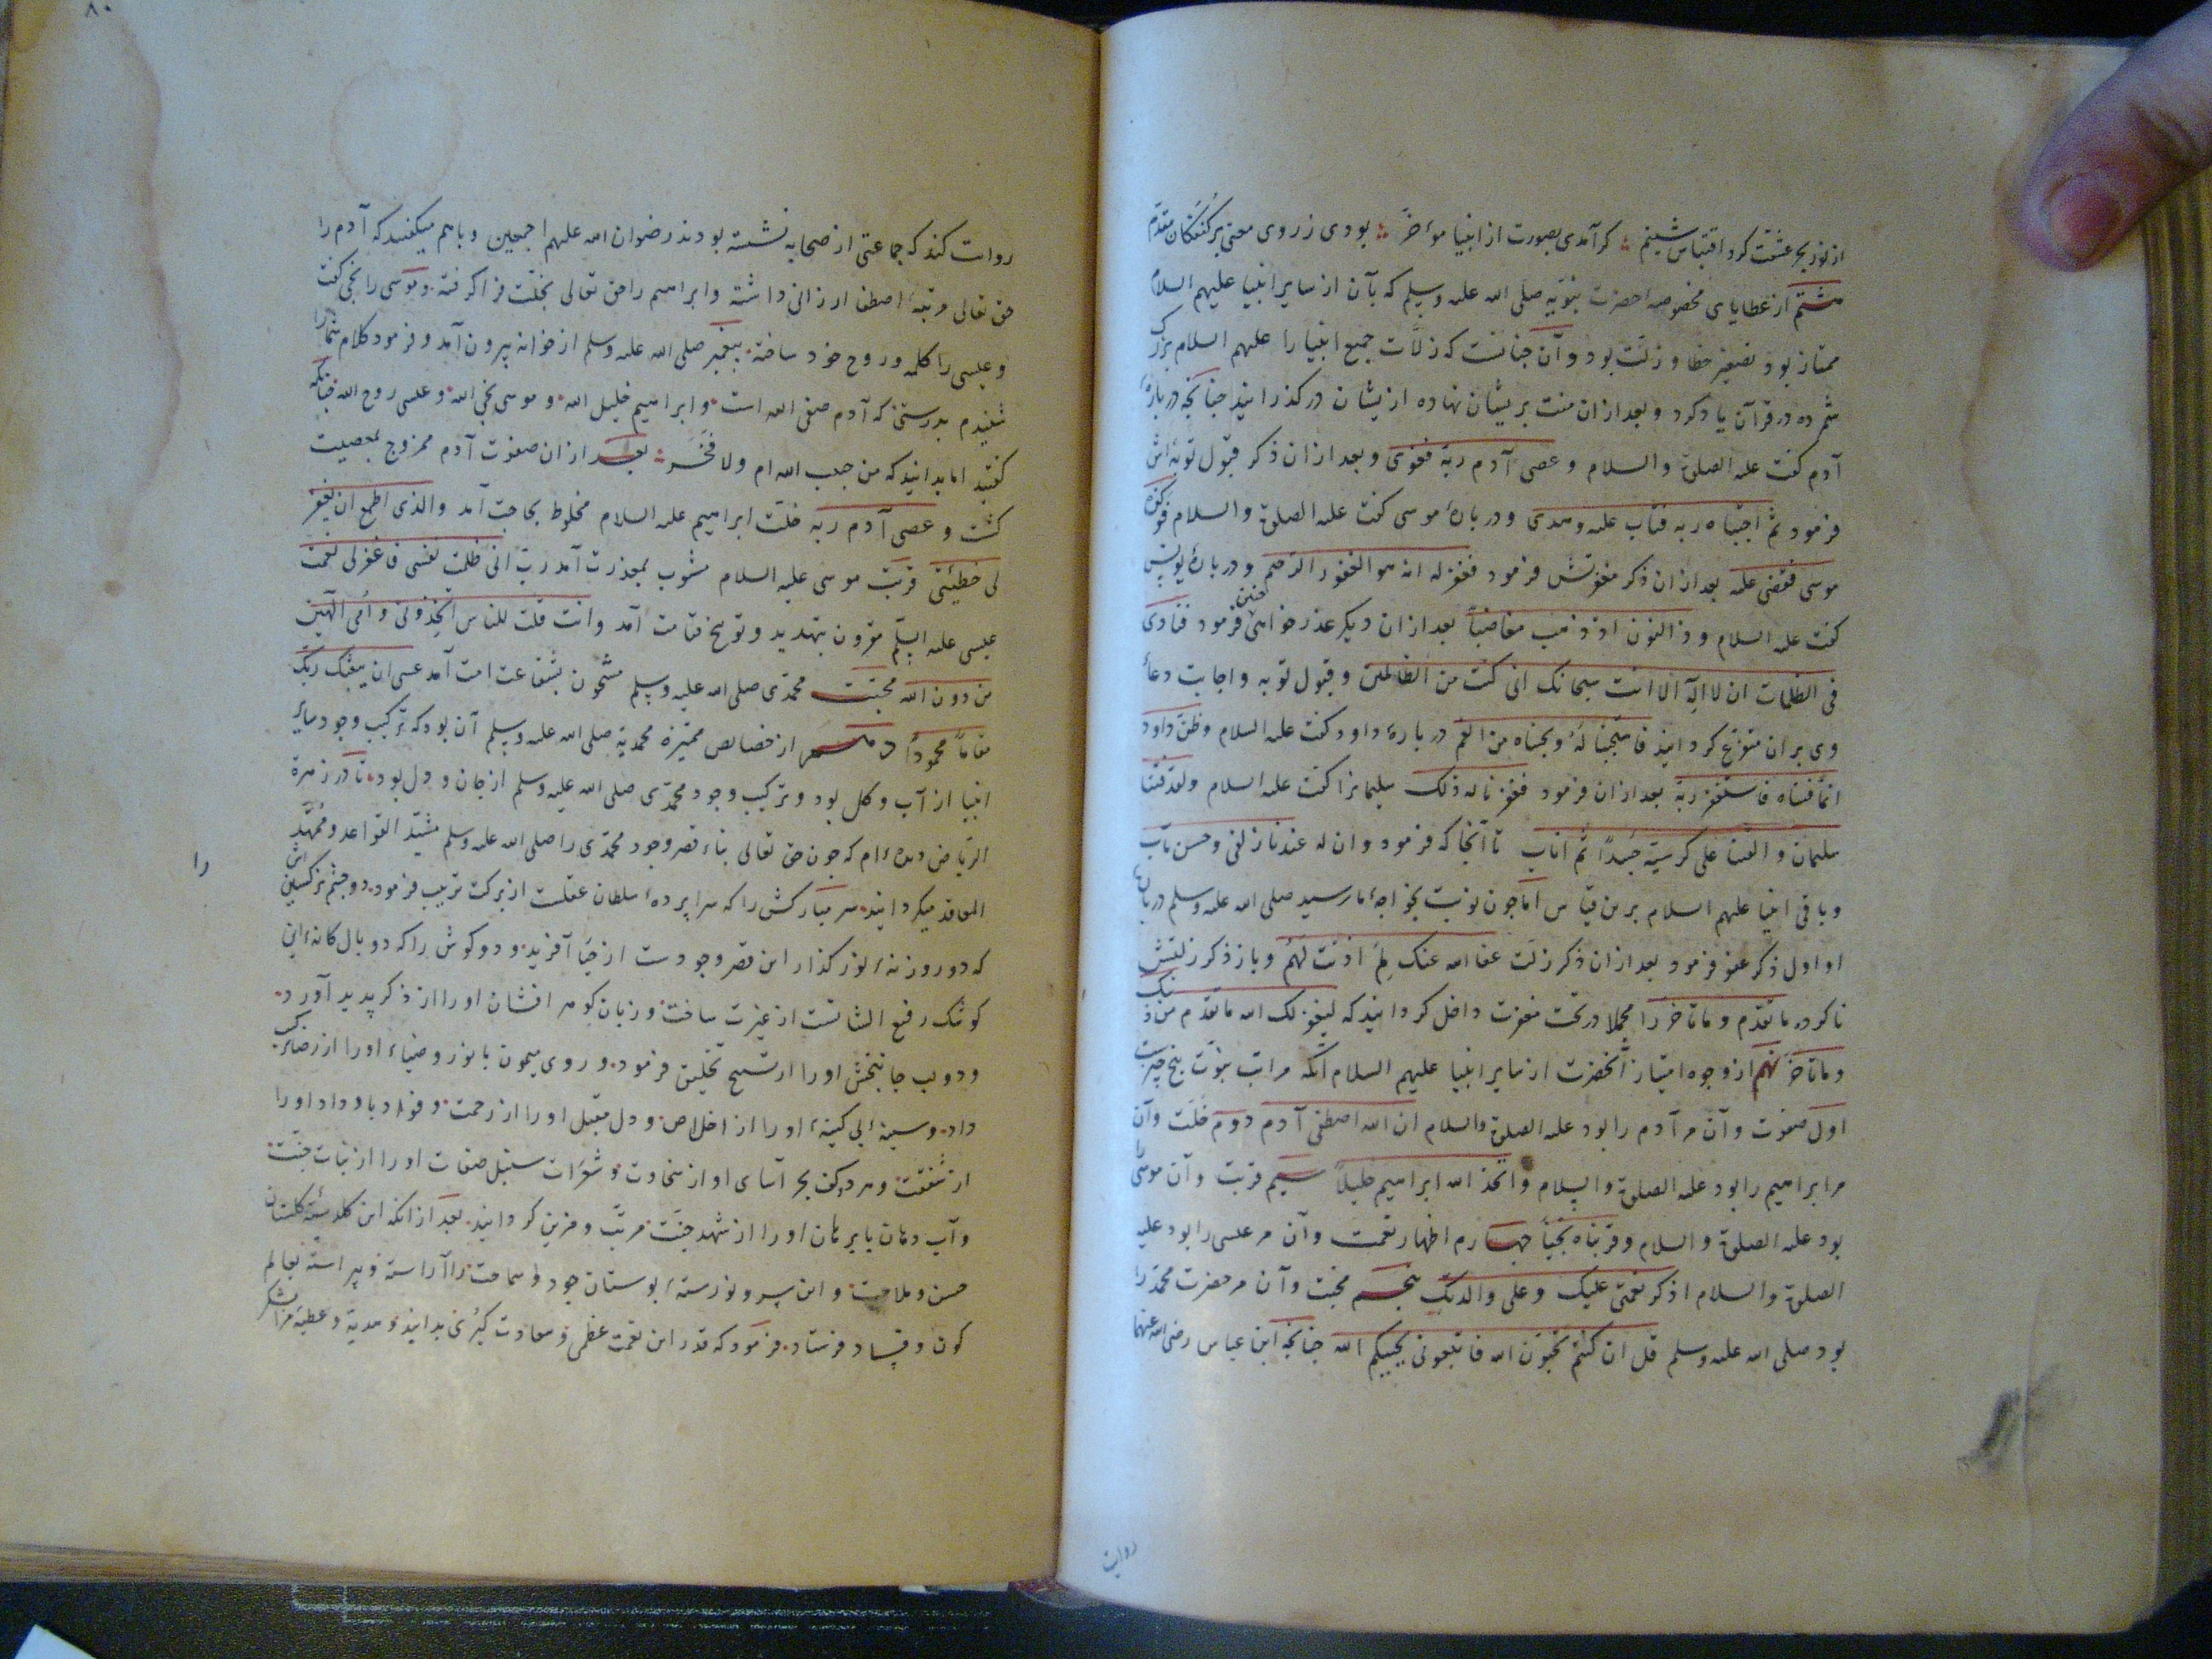 از نور بحر عشقت کرد اقتباس شبنم کر آمدی بصورت از انبیا مؤخر بودی ز روی معنی بر متقدم
هشتم از عطایای مخصوصه احضرت بنویه صلی الله علیه وسلم که بآن از سایر انبیا علیهم السلام
ممتاز بود تصغیر خطا و زلت بود و آن جنانست که زلات جمیع انبیا را علیهم السلام بزرک
شمرده در قرآن یاد کرد و بعد از ان منت بریشان نهاده ازیشان درکذرانید جنانجه درباره
آدم کفت علیه الصلوة والسلام و عصی آدم ربه فغوی و بعد ازان ذکر قبول توبه اش
فرمود ثم اجتباه ربه فتاب علیه وهدی و دربارهٔ موسی کفت علیه الصلوة والسلام فوکزه
موسی فقضی علیه بعد ازان ذکر مغفرتش فرمود فغفر له انه هو الغفور الرحیم و دربارهٔ یونس
کفت علیه السلام و ذا النون اذ ذهب مغاضباً بعد ازان دیکر عذر خواهی جنین فرمود فنادی
فی الظلمات ان لا اله الا انت سبحانک انی کنت من الظالمین و قبول توبه و اجابت دعاء
وی بران متفرع کردانید فاستجبنا له و نجیناه من الغم دربارهٔ داود کفت علیه السلام وظن داود
انما فتناه فاستغفر ربه بعد ازان فرمود فغفرنا له ذلک سلیمانرا کفت علیه السلام ولقد فتنا
سلیمان و القینا علی کرسیه جسداً ثم اناب تا آنجا که فرمود وان له عندنا لزلفی وحسن مآب
و باقی انبیا علیهم السلام برین قیاس اما جون نوبت بخواجهٔ ما رسید صلی الله علیه وسلم دربارهٔ
او اول ذکر عفو فرمود بعد ازان ذکر زلت عفا الله عنک لم اذنت لهم و باز ذکر زلتش
ناکرده ما تقدم و ما تأخر را مجملا در تحت مغفرت داخل کردانید که لیغفر لک الله ما تقدم من ذنبک
وما تأخر نهم از وجوه امتیاز آنحضرت از سایر انبیا علیهم السلام آنکه مراتب نبوت پنج جیزست
اول صفوت و آن مر آدم را بود علیه الصلوة والسلام ان الله اصطفی آدم دوم خلت و آن
مر ابراهیم را بود علیه الصلوة والسلام و اتخذ الله ابراهیم خلیلا سیم قربت و آن موسی را
بود علیه الصلوة والسلام وقربناه نجیا جهارم اظهار نعمت و آن مر عیسی را بود علیه
الصلوة والسلام اذکر نعمتی علیک وعلی والدتک پنجم محبت و آن مر حضرت محمد را
بود صلی الله علیه وسلم قل ان کنتم تحبون الله فاتبعونی یحببکم الله جنانجه ابن عباس رضی الله عنهما
روایت
۸۰
روایت کند که جماعتی از صحابه نشسته بودند رضوان الله علیهم اجمعین و باهم میکفتند که آدم را
حق تعالی مرتبهٔ اصطفا ارزانی داشته و ابراهیم را حق تعالی بخلت فرا کرفته و موسی را نجی کفت
و عیسی را کلمه و روح خود ساخته پیغمبر صلی الله علیه وسلم از خوانه بیرون آمد و فرمود کلام شما را
شنیدم بدرستی که آدم صفی الله است و ابراهیم خلیل الله و موسی نجی الله و عیسی روح الله جنانکه
کفتید اما بدانید که من حبیب الله ام ولا فخر بعد ازان صفوت آدم ممزوج بمعصیت
کشت و عصی آدم ربه خلت ابراهیم علیه السلام مخلوط بحاجت آمد والذی اطمع ان یغفر
لی خطیئتی قربت موسی علیه السلام مشوب بمعذرت آمد رب انی ظلمت نفسی فاغفرلی نعمت
عیسی علیه السلم مقرون بتهدید و توبیخ قیامت آمد وانت قلت للناس اتخذونی وامی الهین
من دون الله محبت محمدی صلی الله علیه وسلم مشحون بشفاعت امت آمد عسی ان یبعثک ربک
مقاماً محموداً دهم از خصایص ممیزهٔ محمدیه صلی الله علیه وسلم آن بود که ترکیب وجود سایر
انبیا از آب و کل بود و ترکیب وجود محمدی صلی الله علیه وسلم از جان و دل بود تا در زهرة
الریاض دیدهٔ ام که جون حق تعالی بناء قصر وجود محمدی را صلی الله علیه وسلم مشید القواعد و ممهد
المعاقد میکردانید سر مبارکش را که سرا پردهٔ سلطان عقلست از برکت ترتیب فرمود دو جشم نرکسین اش
را
که دو روزنهٔ نور کذار این قصر وجودست از حیا آفرید و دو کوش را که دو بال کانهٔ این
کوشک رفیع الشانست از عبرت ساخت و زبان کوهر افشان او را از ذکر پدید آورد
و دو لب جانبخش او را از تسبیح تخلیق فرمود و روی میمون با نور و ضیاء او را از رضا ترکیب
داد و سینهٔ بی کینهٔ او را از اخلاص و دل مقبل او را از رحمت و فؤاد با وداد او را
از شفقت و هر دو کف بحر آسای او از سخاوت و شعرات سنبل صفات او را از نبات جنت
و آب دهان او را از شهد جنت مرتب و مزین کردانید بعد ازانکه این کلدستهٔ کلستان
حسن و ملاحت و این سرو نورستهٔ بوستان جود و سماحت را آراسته و پیراسته بعالم
کون و فساد فرستاد فرمود که قدر این نعمت عظمی و سعادت کبری بدانید و هدیه و عطیهٔ مرا شکر